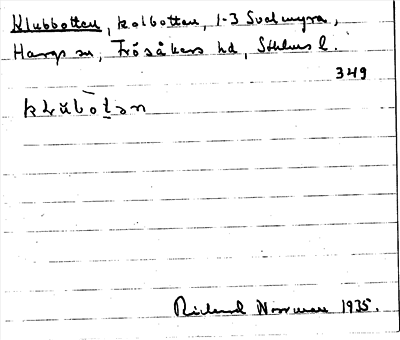 Klubbotten, kolbotten, 1-3 Svalmyra,
Hargs sn, Frösåkers hd, Sthlms l.
349
klubotən
Rickard Norrman 1935.